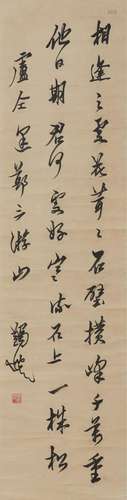 相逢之處花茸〻石壁攢峰千萬重
他日期君何處好寒流石上一株松
盧仝逢鄭三游山